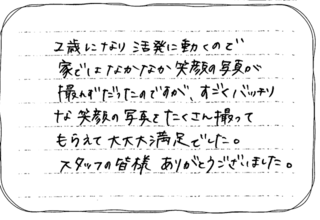 2歳になり 活発に動くので
家ではなかなか笑顔の写真が
撮れずだったのですが、すごくバッチリ
な笑顔の写真をたくさん撮って
もらえて大大大満足でした。
スタッフの皆様 ありがとうございました。